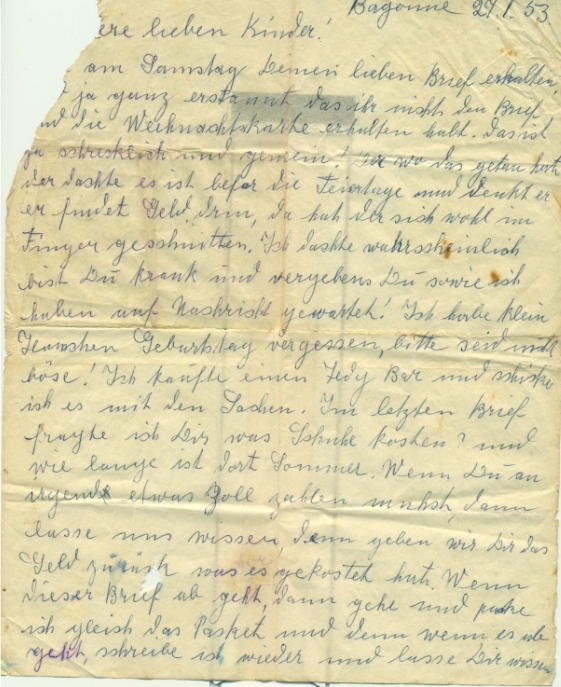 Bayonne 27.1.53
ere lieben Kinder!
am Samstag Deinen lieben Brief erhalten,
ja ganz erstaunt das ihr nicht den Brief
und die Weihnachtskarte erhalten habt. Das ist
ja schrecklich und gemein! Der wo das getan hat
der dachte es ist befor die Feiertage und denkt er
er findet Geld drin, da hat der sich wohl im
Finger geschnitten. Ich dachte wahrscheinlich
bist Du krank und vergebens Du sowie ich
haben auf Nachricht gewartet! Ich habe klein
Geburtstag vergessen, bitte seid nicht
böse! Ich kaufte einen Tedy Bar und schicke
ich es mit den Sachen. Im letzten Brief
fragte ich Dir was Schuhe kosten? und
wie lange ist dort Sommer. Wenn Du an
irgend etwas Zoll zahlen muhst, dann
lasse uns wissen denn geben wir Dir das
Geld zurück was es gekostet hat. Wenn
dieser Brief ab geht, dann gehe und packe
ich gleich das Packet und denn wenn es ab
geht, schreibe ich wieder und lasse Dir wissen